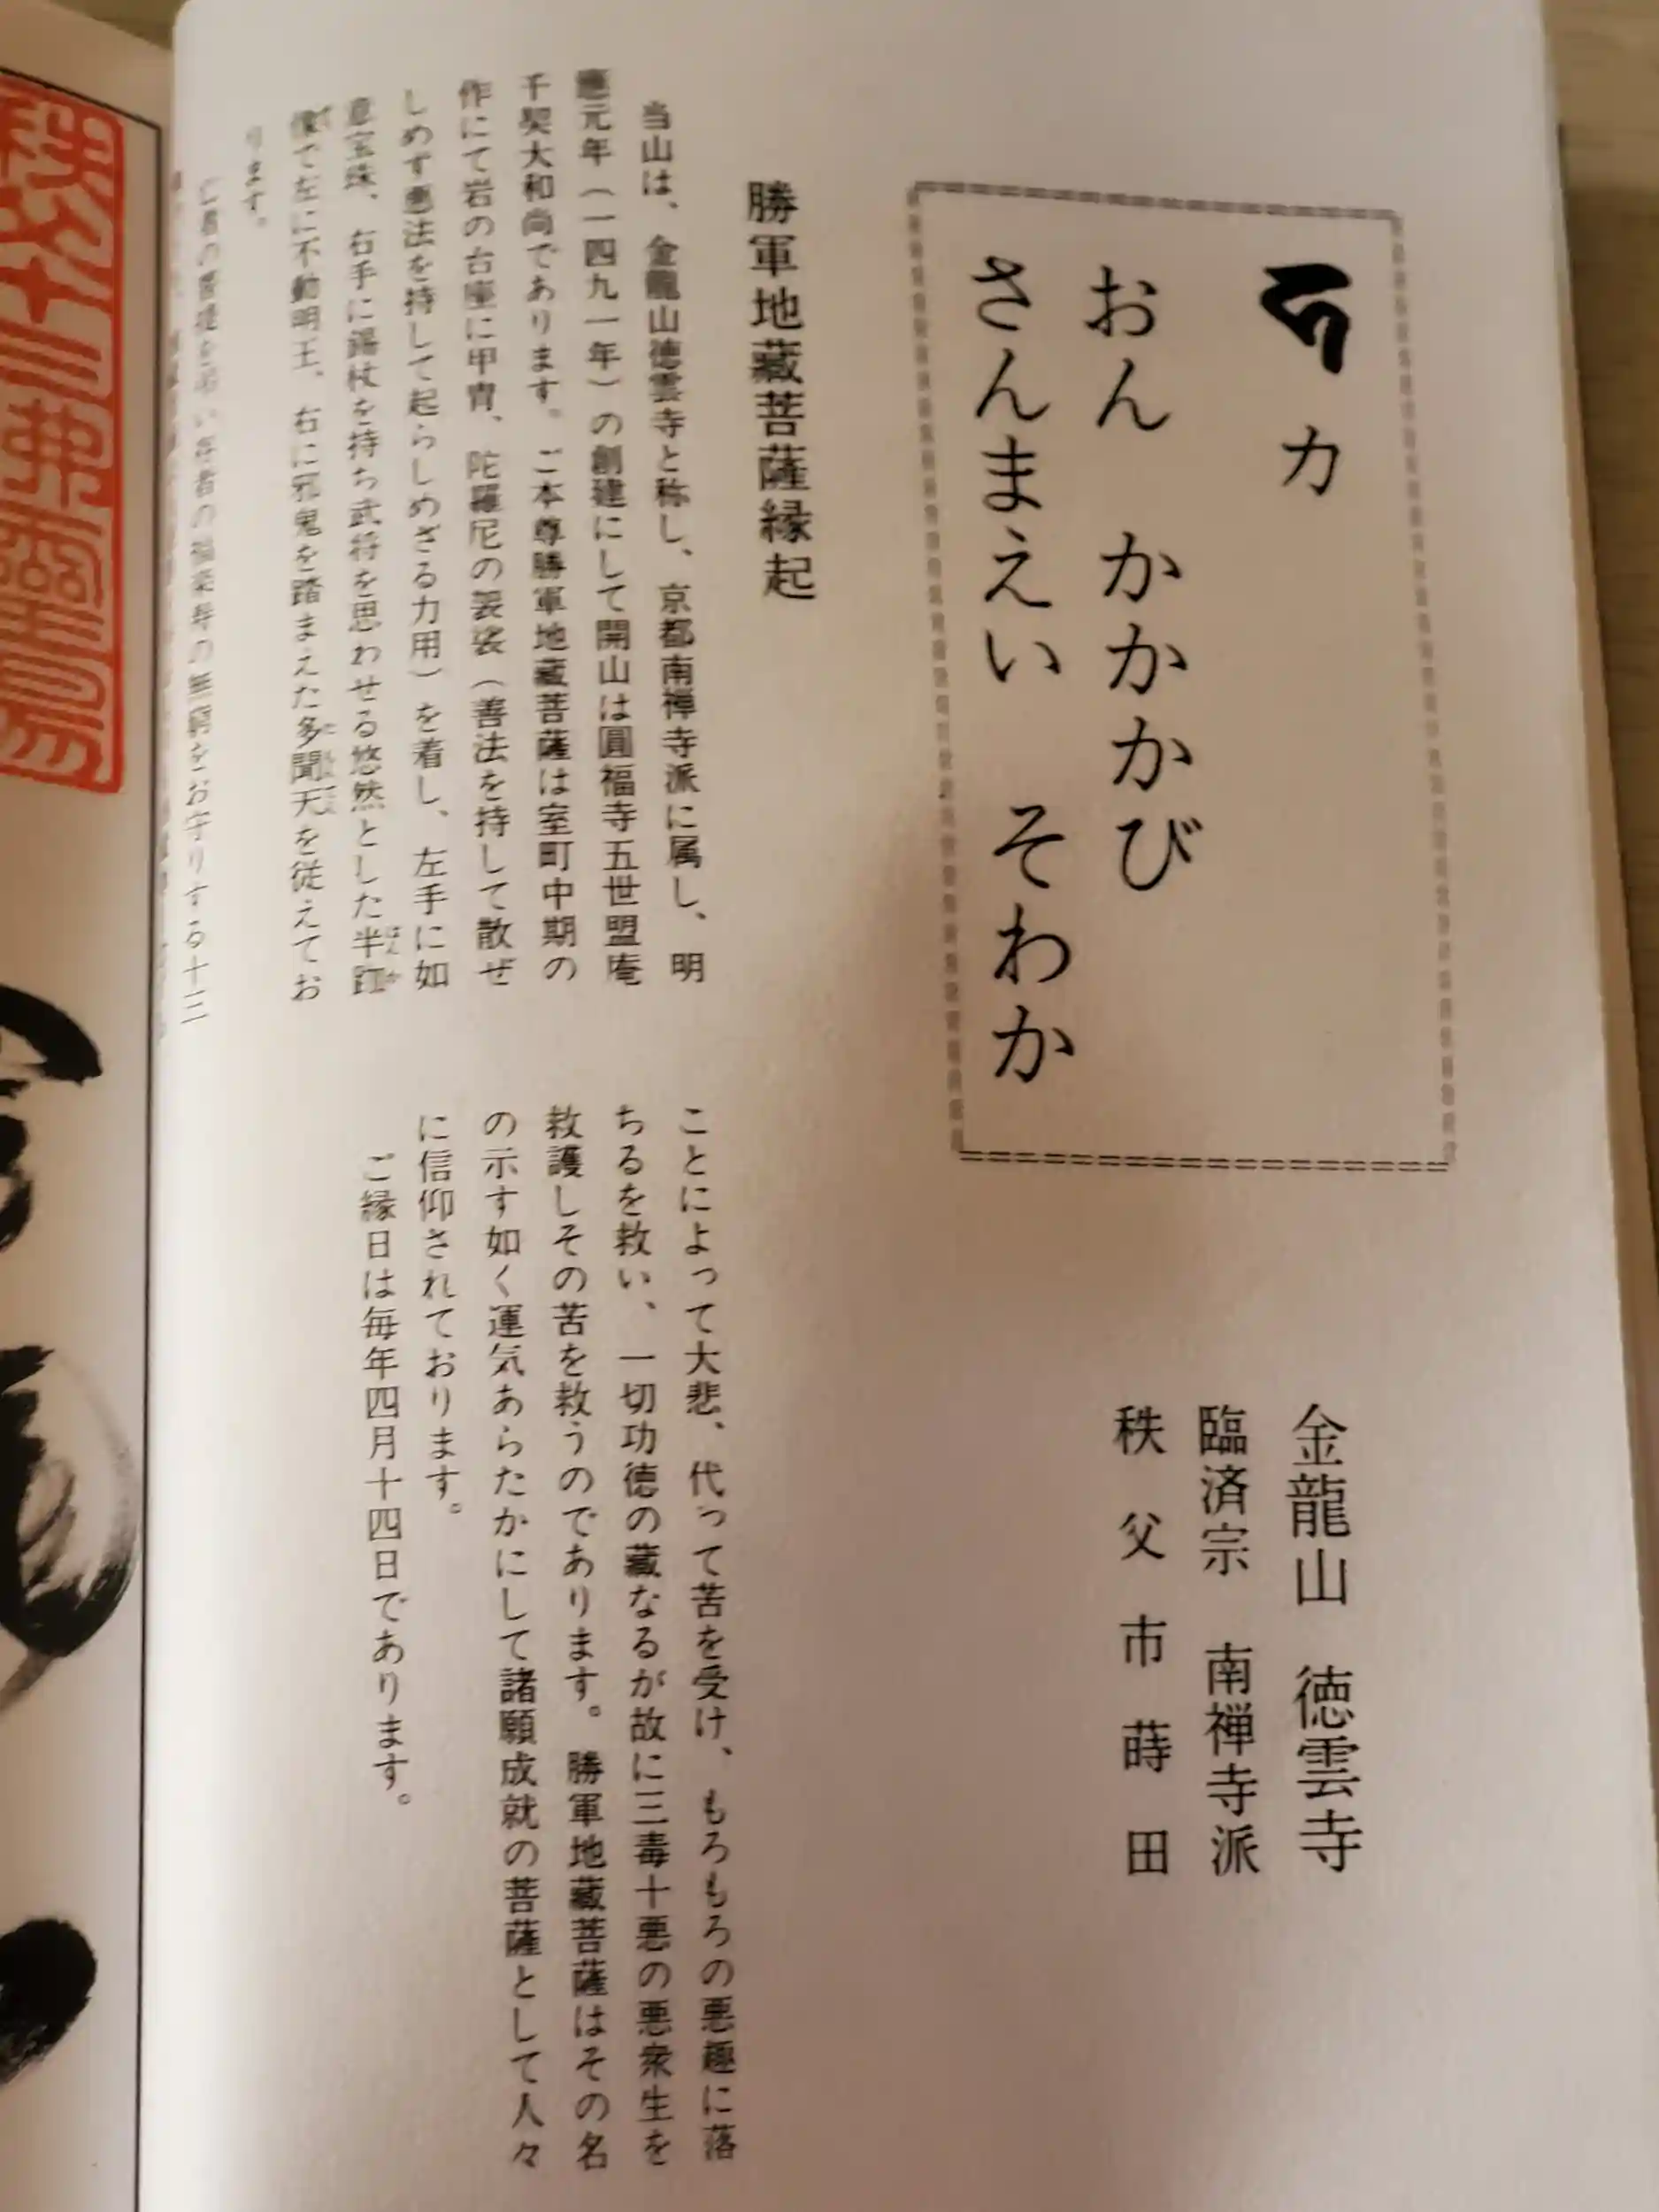 カ
おん　かかかび
さんまえい　そわか
金龍山　徳雲寺
臨済宗　南禅寺派
秩父市蒔田
勝軍地蔵菩薩縁起
当山は、金龍山徳雲寺と称し、京都南禅寺派に属し、明
應元年（一四九一年）の創建にして開山は圓福寺五世盟庵
千契大和尚であります。ご本尊勝軍地蔵菩薩は室町中期の
作にて岩の台座に甲冑、陀羅尼の袈裟（善法を持して散ぜ
しめず悪法を持して起らしめざる力用）を着し、左手に如
意宝珠、右手に錫杖を持ち武将を思わせる悠然とした半跏
像で左に不動明王、右に邪鬼を踏まえた多聞天を従えてお
ります。
の菩提を い存者の福楽寿の無窮をお守りする十三
ことによって大悲、代って苦を受け、もろもろの悪趣に落
ちるを救い、一切功徳の蔵なるが故に三毒十悪の悪衆生を
救護しその苦を救うのであります。勝軍地蔵菩薩はその名
の示す如く運気あらたかにして諸願成就の菩薩として人々
に信仰されております。
ご縁日は毎年四月十四日であります。